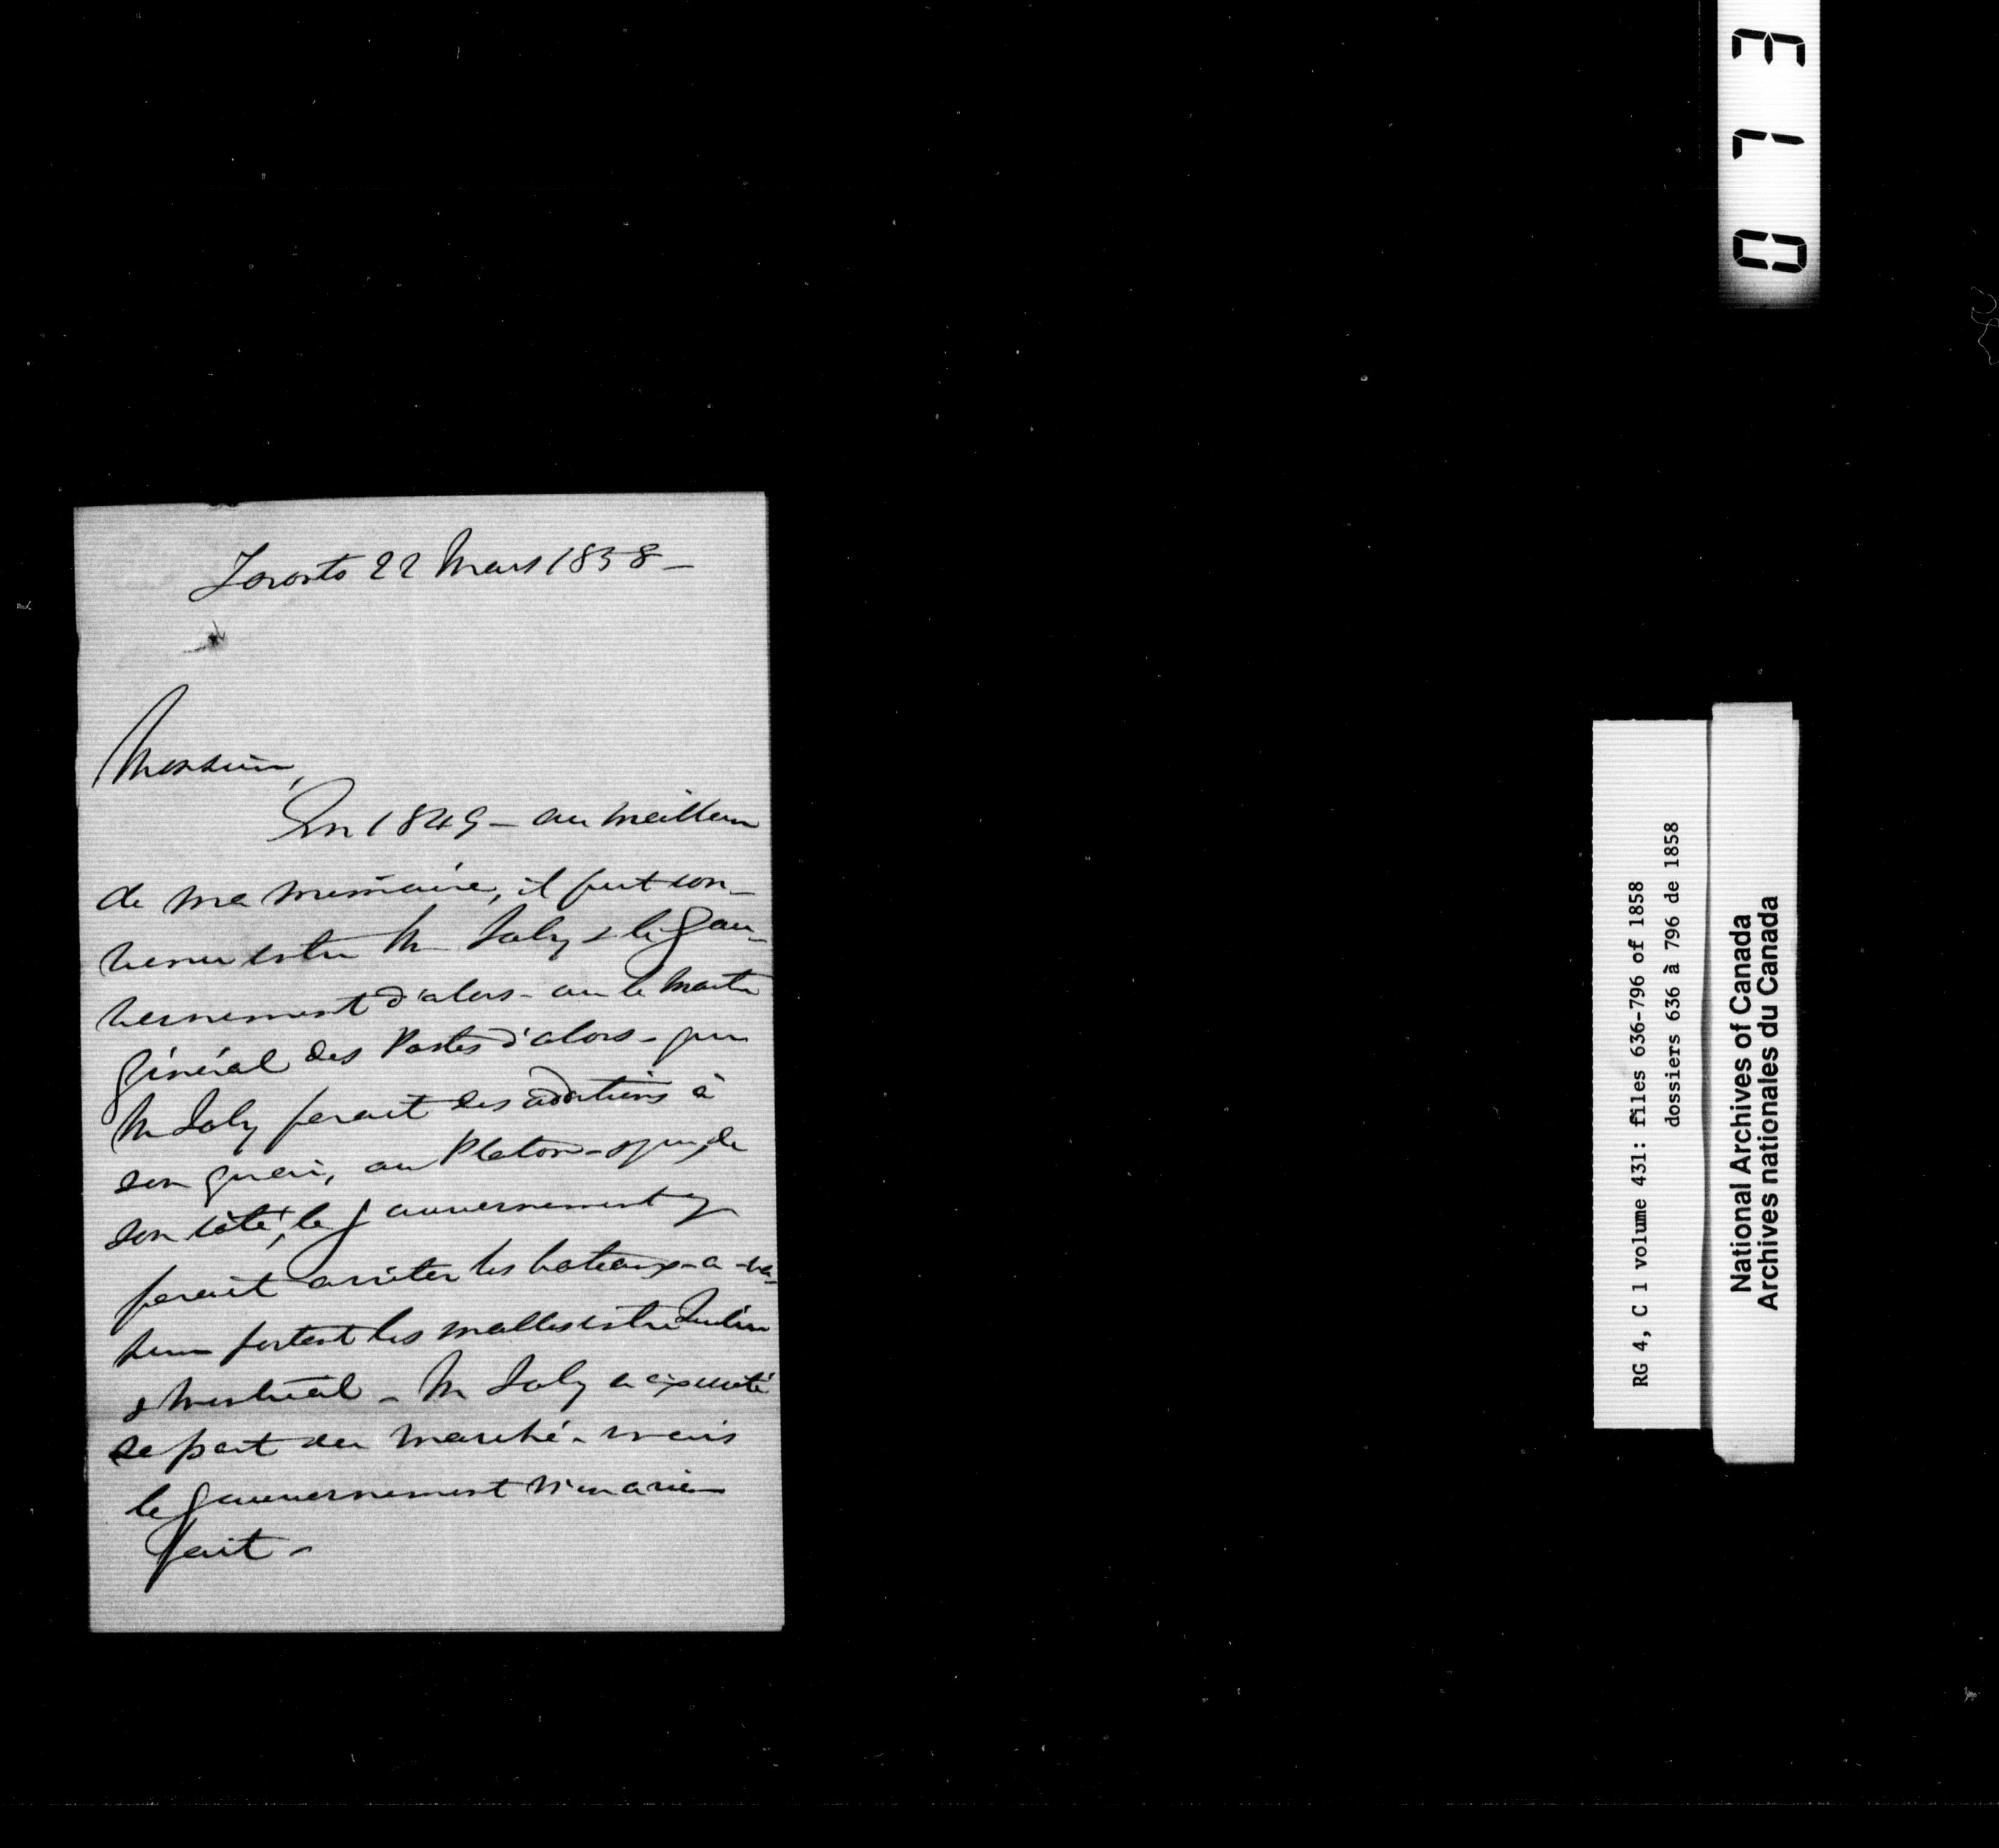 Toronto 22 Mars 1858 —
Monsieur,
En 1849 — au meilleur
de ma mémoire, il fut con-
venu entre M Joly & le Gou-
vernement d'alors - ou le Maitre
Général des Postes d'alors - que
M Joly ferait des additions à
son quai, au Platon - & que, de
son côté, le gouvernement y
ferait arrêter les bateaux-a-va-
peur portant les malles entre Québec
& Montréal - M Joly a exécuté
sa part du marché - mais
le gouvernement n'en a rien
fait -
RG 4, C 1 volume 431: files 636-796 of 1858
dossiers 636 à 796 de 1858
National Archives of Canada
Archives nationales du Canada